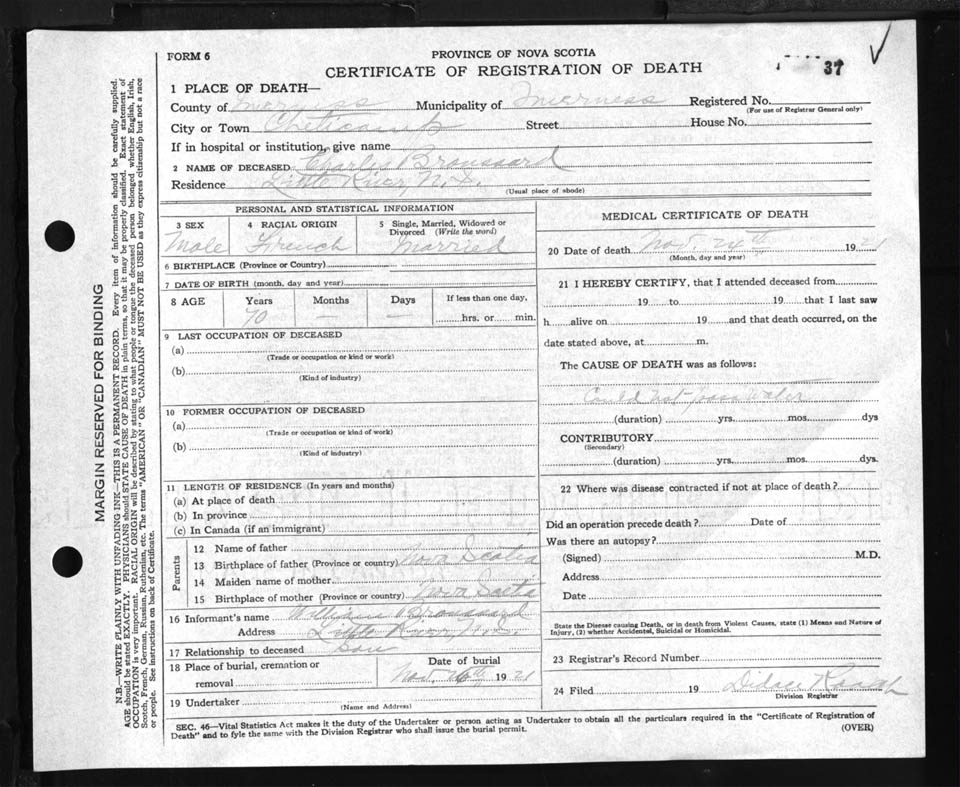 FORM 6
PROVINCE OF NOVA SCOTIA
CERTIFICATE OF REGISTRATION OF DEATH
37
1 PLACE OF DEATH—
County of Inverness Municipality of Inverness Registered No.
(For use of Registrar General only)
City or Town Cheticamp Street House No.
If in hospital or institution, give name
2 NAME OF DECEASED Charles Broussard
Residence Little River, N.S.
(Usual place of abode)
PERSONAL AND STATISTICAL INFORMATION
3 SEX 4 RACIAL ORIGIN 5 Single, Married, Widowed or Divorced (Write the word)
Male French Married
6 BIRTHPLACE (Province or Country)
7 DATE OF BIRTH (month, day and year)
8 AGE Years Months Days If less than one day,
70 — — hrs. or min.
9 LAST OCCUPATION OF DECEASED
(a)
(Trade or occupation or kind of work)
(b)
(Kind of industry)
10 FORMER OCCUPATION OF DECEASED
(a)
(Trade or occupation or kind of work)
(b)
(Kind of industry)
11 LENGTH OF RESIDENCE (In years and months)
(a) At place of death
(b) In province
(c) In Canada (if an immigrant)
Parents
12 Name of father
13 Birthplace of father (Province or country) Nova Scotia
14 Maiden name of mother
15 Birthplace of mother (Province or country) Nova Scotia
16 Informant's name William Broussard
Address Little River, N.S.
17 Relationship to deceased Son
18 Place of burial, cremation or removal Date of burial
Nov. 26th 1921
19 Undertaker
(Name and Address)
MEDICAL CERTIFICATE OF DEATH
20 Date of death Nov. 24th 1921
(Month, day and year)
21 I HEREBY CERTIFY, that I attended deceased from
19 to 19 that I last saw
h alive on 19 and that death occurred, on the
date stated above, at m.
The CAUSE OF DEATH was as follows:
Could not pass water
(duration) yrs. mos. dys
CONTRIBUTORY
(Secondary)
(duration) yrs. mos. dys.
22 Where was disease contracted if not at place of death?
Did an operation precede death? Date of
Was there an autopsy?
(Signed) M.D.
Address
Date
State the Disease causing Death, or in death from Violent Causes, state (1) Means and Nature of
Injury, (2) whether Accidental, Suicidal or Homicidal.
23 Registrar's Record Number
24 Filed 19
Division Registrar
SEC. 46—Vital Statistics Act makes it the duty of the Undertaker or person acting as Undertaker to obtain all the particulars required in the "Certificate of Registration of
Death" and to fyle the same with the Division Registrar who shall issue the burial permit. (OVER)
MARGIN RESERVED FOR BINDING
N.B.—WRITE PLAINLY WITH UNFADING INK—THIS IS A PERMANENT RECORD. Every item of information should be carefully supplied.
AGE should be stated EXACTLY. PHYSICIANS should STATE CAUSE OF DEATH in plain terms, so that it may be properly classified. Exact statement of
OCCUPATION is very important. RACIAL ORIGIN will be described by stating to what people or tongue the deceased person belonged whether English, Irish,
Scotch, French, German, Russian, Ruthenian, etc. The terms "AMERICAN" OR "CANADIAN" MUST NOT BE USED as they express citizenship but not a race
or people. See instructions on back of Certificate.